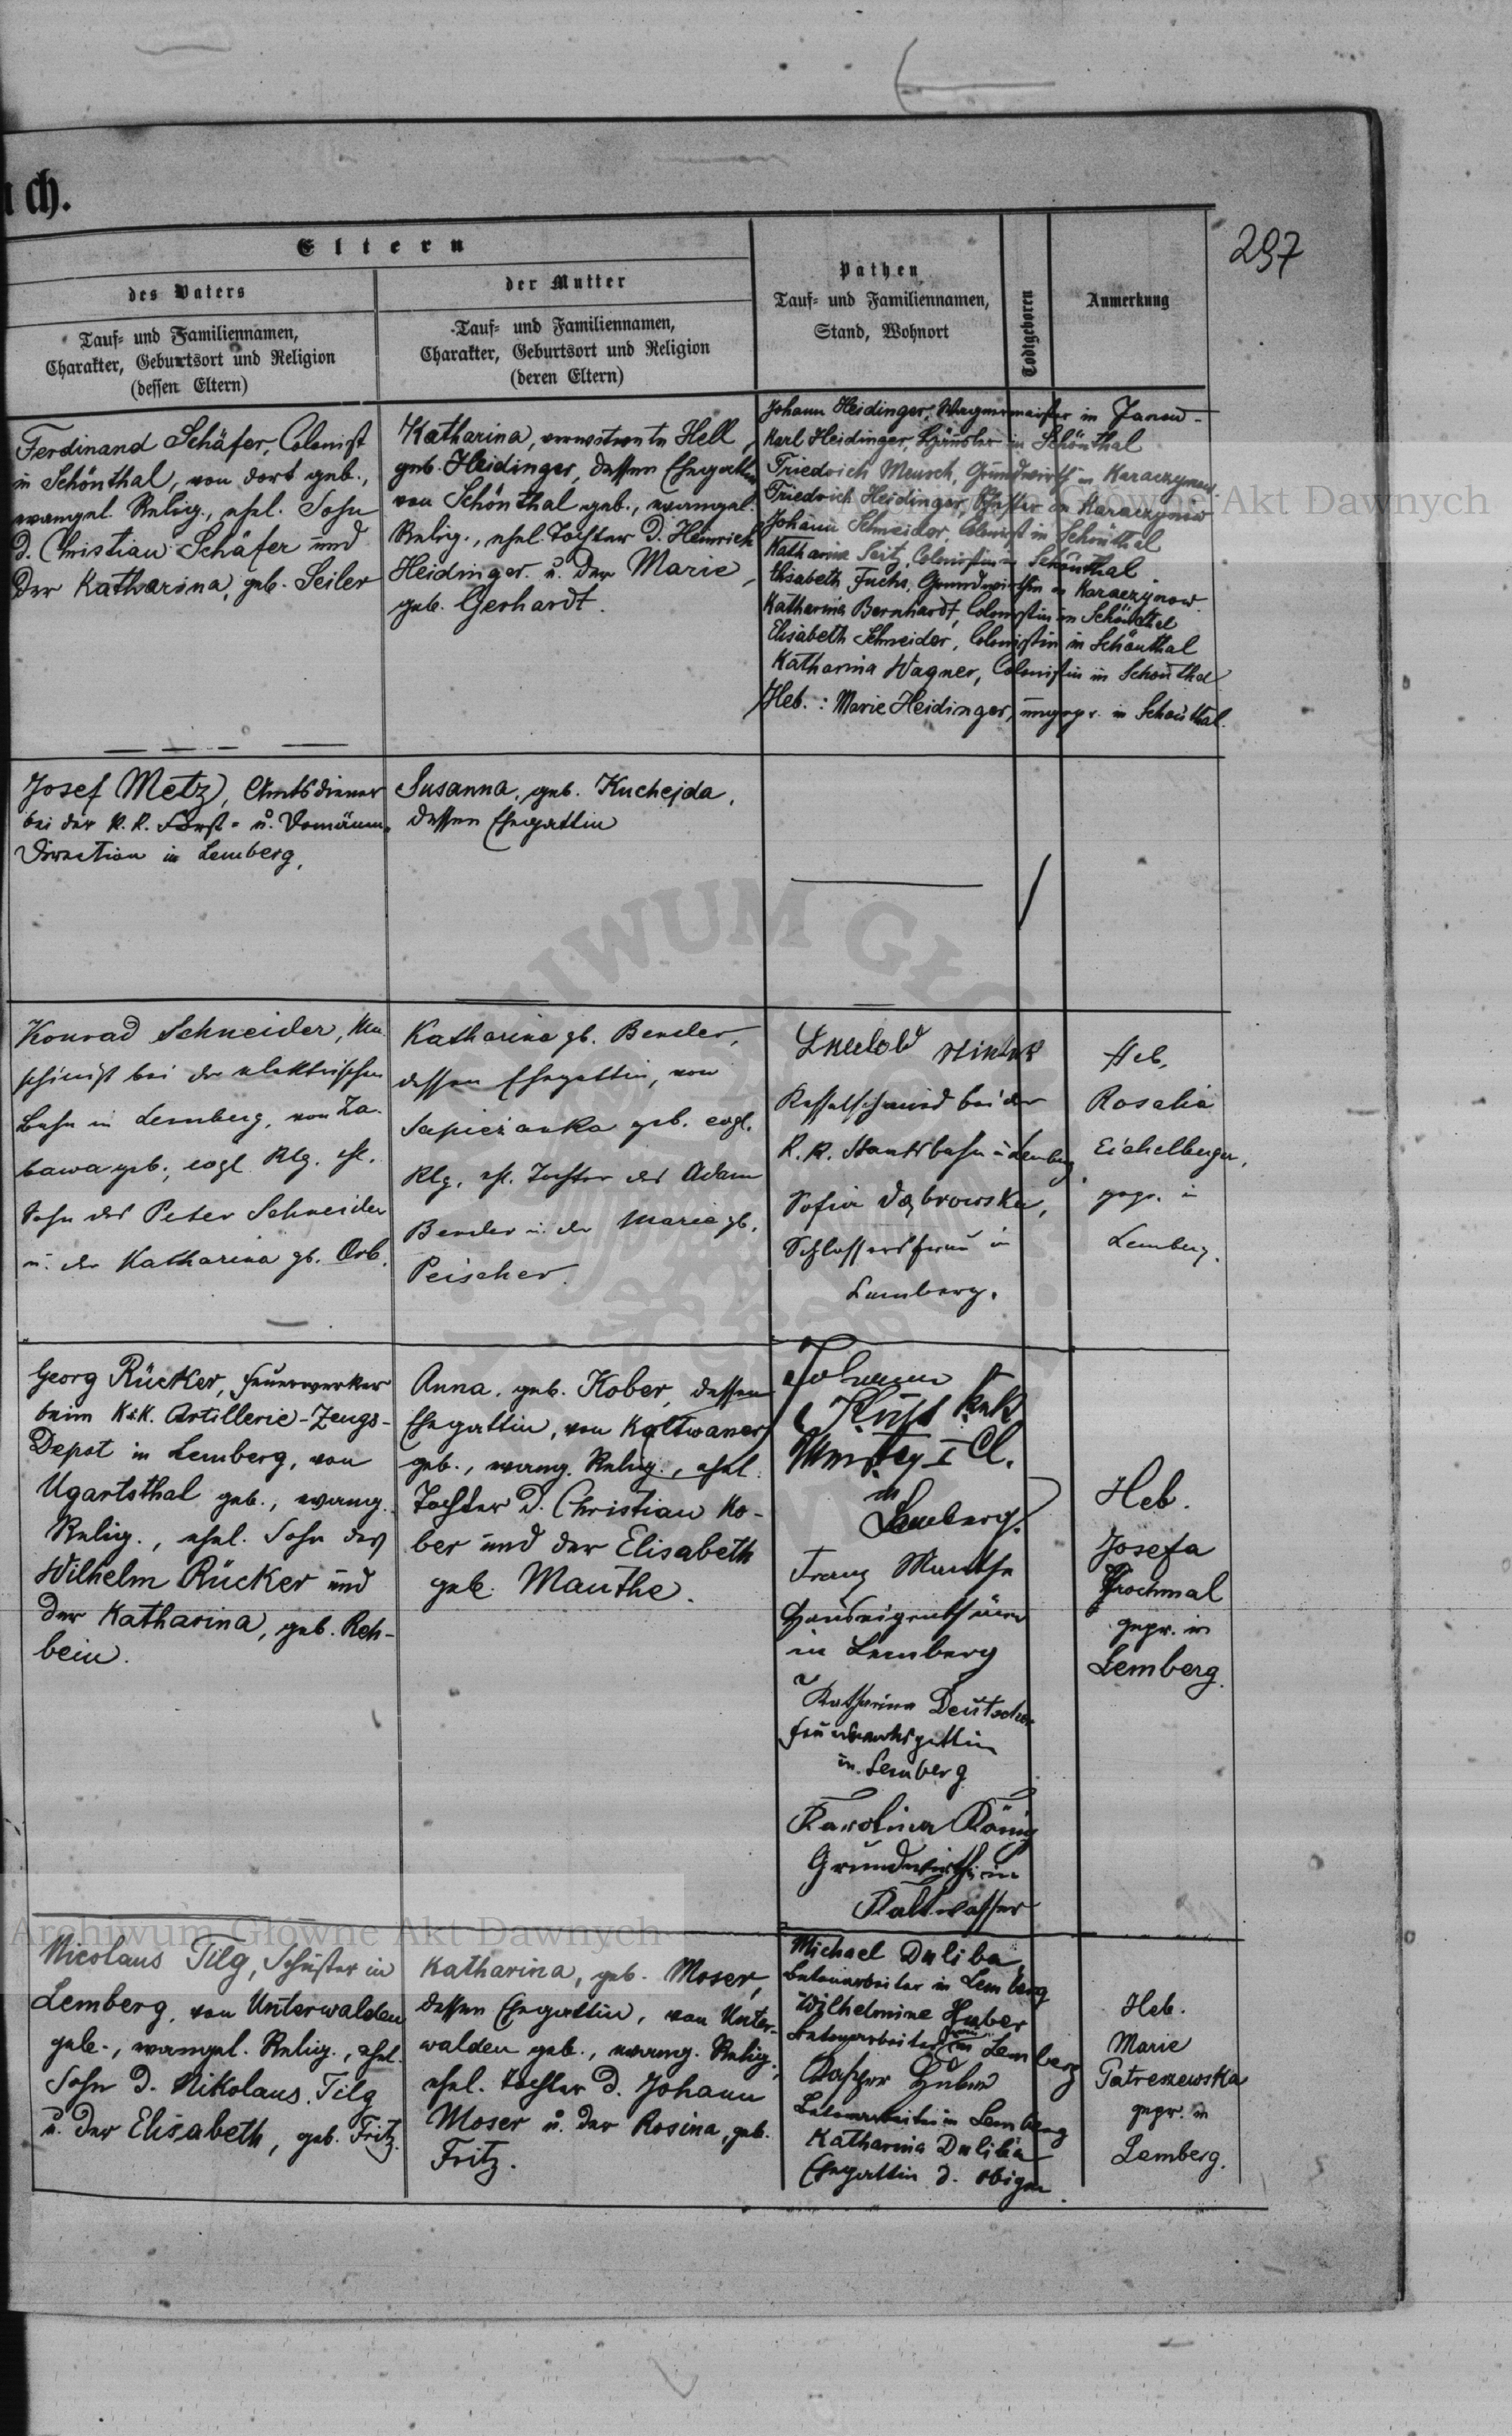 ch.
297
Eltern
des Vaters
der Mutter
Pathen
Tauf- und Familiennamen,
Stand, Wohnort
Todtgeboren
Anmerkung
Tauf- und Familiennamen,
Charakter, Geburtsort und Religion
(dessen Eltern)
Tauf- und Familiennamen,
Charakter, Geburtsort und Religion
(deren Eltern)
Ferdinand Schäfer, Colonist
in Schönthal, von dort geb.,
evangel. Relig., ehel. Sohn
d. Christian Schäfer und
der Katharina, geb. Seiler
Katharina, verwitwete Hell,
geb. Heidinger, dessen Ehegattin
von Schönthal geb., evangel.
Relig., ehel. Tochter d. Heinrich
Heidinger u. der Marie,
geb. Gerhardt.
Johann Heidinger, Wagnermeister in Janow
Karl Heidinger, Häusler in Schönthal
Friedrich Mensch, Grundwirth in Karaczynow
Friedrich Heidinger, in Karaczynow
Johann Schneider, Colonist in Schönthal
Katharina Seitz, Colonistin in Schönthal
Elisabeth Fuchs, Grundwirthin in Karaczynow
Katharina Bernhardt, Colonistin in Schönthal
Elisabeth Schneider, Colonistin in Schönthal
Katharina Wagner, Colonistin in Schönthal
Heb.: Marie Heidinger, ungepr. in Schönthal.
Josef Metz, Amtsdiener
bei der k.k. Forst- u. Domänen-
Direction in Lemberg.
Susanna, geb. Kuchejda,
dessen Ehegattin
Konrad Schneider, Ma-
schinist bei der elektrischen
Bahn in Lemberg, von Za-
bawa geb., evgl. Rlg. ehl.
Sohn des Peter Schneider
u. der Katharina gb. Orb.
Katharina gb. Bender,
dessen Ehegattin, von
Sapiezanka geb. evgl.
Rlg. ehl. Tochter des Adam
Bender u. der Maria gb.
Peischer.
Kesselschmied bei der
k.k. Staatsbahn in Lemberg.
Sofia Dąbrowska,
Schlossersfrau in
Lemberg.
Heb.
Rosalia
Eichelberger,
gepr. in
Lemberg.
Georg Rücker, Feuerwerker
beim K.u.K. Artillerie-Zeugs-
Depot in Lemberg, von
Ugartsthal geb., evang.
Relig., ehel. Sohn des
Wilhelm Rücker und
der Katharina, geb. Reh-
bein.
Anna, geb. Kober, dessen
Ehegattin, von Kaltwasser
geb., evang. Relig., ehel.
Tochter d. Christian Ko-
ber und der Elisabeth
geb. Mauthe.
Johann
k.u.k.
I Cl.
in
Lemberg.
Franz Mauthe
Hauseigenthümer
in Lemberg
Katharina Deutscher
Feuerwerkersgattin
in Lemberg
Karolina König
Grundwirthin in
Kaltwasser
Heb.
Josefa
Krochmal
gepr. in
Lemberg.
Nicolaus Tilg, Schuster in
Lemberg, von Unterwalden
geb., evangel. Relig., ehel.
Sohn d. Nikolaus Tilg
u. der Elisabeth, geb. Fritz.
Katharina, geb. Moser,
dessen Ehegattin, von Unter-
walden geb., evang. Relig.,
ehel. Tochter d. Johann
Moser u. der Rosina, geb.
Fritz.
Michael Duliba,
Betonarbeiter in Lemberg
Wilhelmine Huber
Betonarbeiters frau in Lemberg
Kaspar Huber
Betonarbeiter in Lemberg
Katharina Duliba
Ehegattin d. obigen
Heb.
Marie
Patreszewska
gepr. in
Lemberg.
Archiwum Główne Akt Dawnych